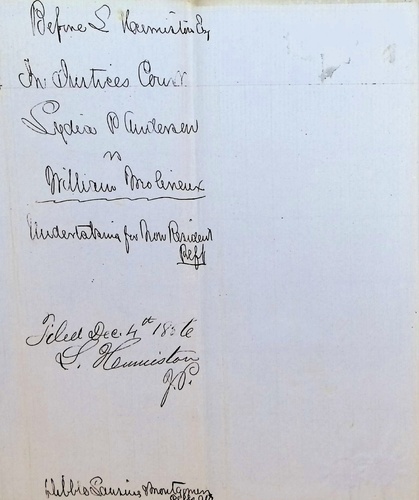 Before L Harmiston Esq
In Justices Court
Lydia P Anderson
vs
William Molineux
Undertaking for Non Resident
Deft
Filed Dec. 4th
L. Harmiston
J.P.
Montgomery